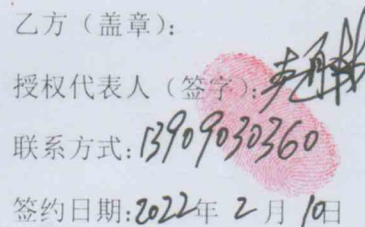 乙方（盖章）：
授权代表人（签字）：
联系方式：13909030360
签约日期：2022年2月10日